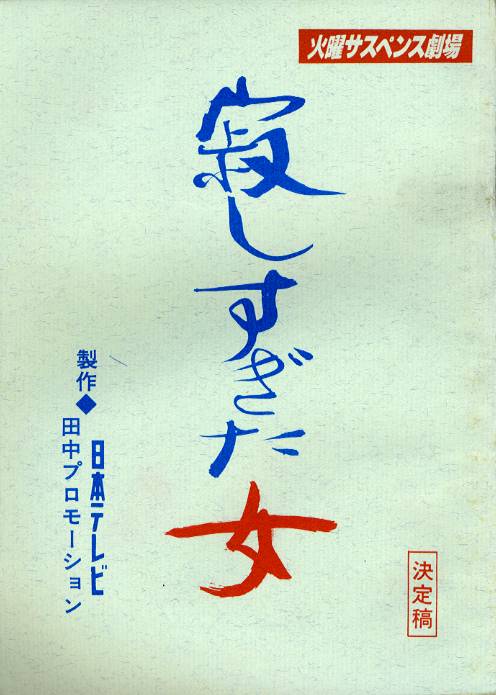 火曜サスペンス劇場
寂しすぎた女
製作◆日本テレビ
田中プロモーション
決定稿